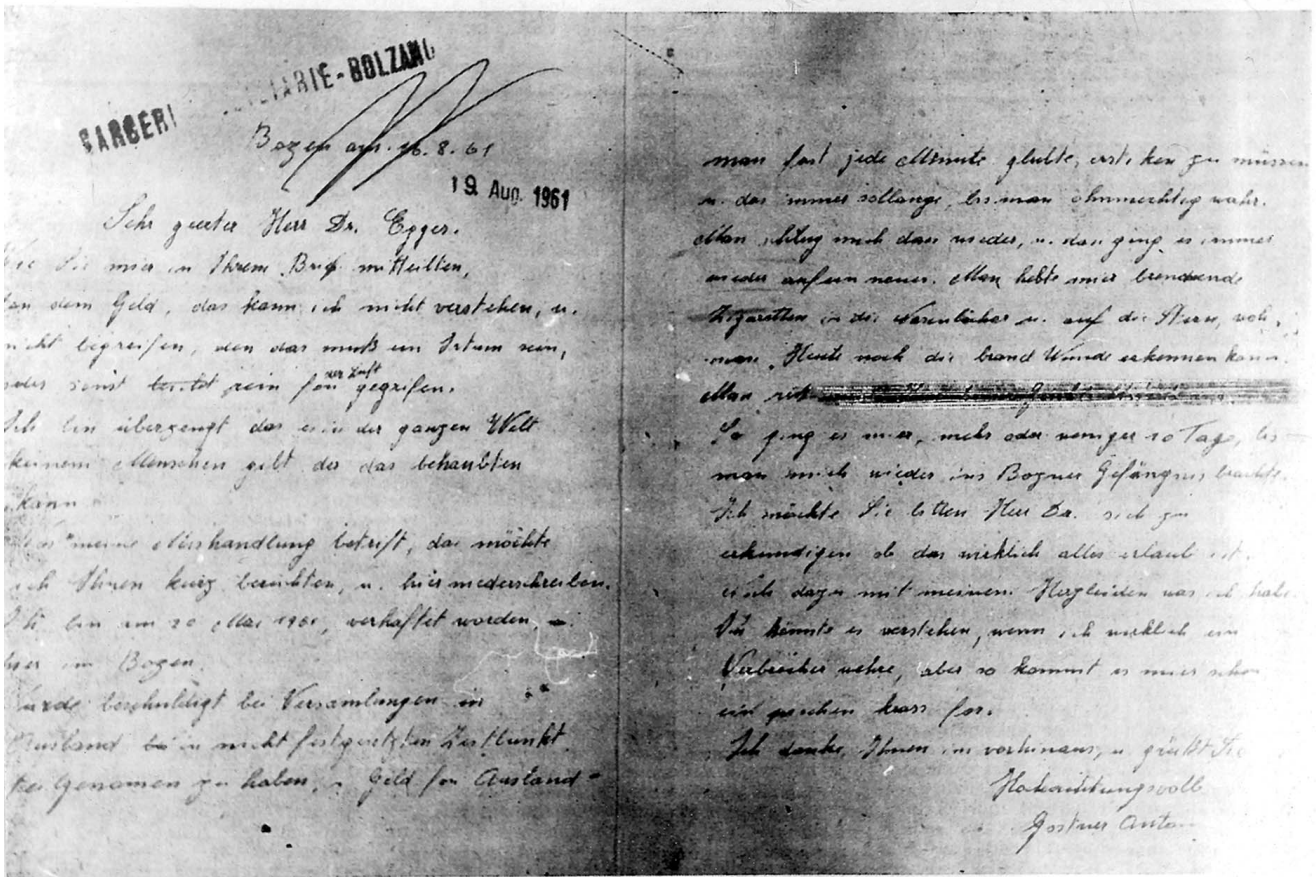 CARCERI GIUDIZIARIE-BOLZANO
Bozen am. 16.8.61
19 Aug. 1961
Sehr geerter Herr Dr. Egger.
Wie Sie mir in Ihrem Brif mitteilten,
dem Geld, das kann ich nicht verstehen, u.
nicht begreifen, den das muß ein Irtum sein,
oder sonst rein fon der Luft gegrifen.
Ich bin überzeugt das es in der ganzen Welt
keinem Menschen gibt der das behaubten
kann.
Was meine Misshandlung betrift, das möchte
ich Ihnen kurz berichten, u. hier niederschreiben.
Ich bin am 20 Mai 1961, verhaftet worden
hier in Bozen.
Wurde beschuldigt bei Versamlungen in
Ausland in nicht festgesetzten Zeitbunkt
teil genomen zu haben, u. Geld fon Ausland
man fast jede Minute glubte, ersticken zu müssen
u. das immer sollange, bis man ohnmechtig wahr.
Man schlug mich dan wieder, u. dan ging es immer
wieder auf ein neues. Man hebte mier brenende
Zigaretten in die Nasenlöcher u. auf die Stirn,
man Heute noch die brand Wunde erkennen kann.
Man
So ging es mier, mehr oder weniger 10 Tage, bis
man mich wieder ins Bozner Gefängnis brachte.
Ich möchte Sie bitten Herr Dr. sich zu
erkundigen ob das wirklich alles erlaub ist.
dazu mit meinen Herzleiden was ich habe.
könnte es verstehen, wenn ich wirklich ein
Verbrecher wehre, aber so kommt es mier schon
ein krass for.
Ich danke, Ihnen im vorhinaus, u. grüßt Sie
Hochachtungsvoll
Gostner Anton